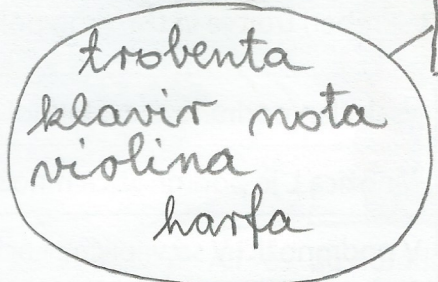 trobenta
klavir nota
violina
harfa